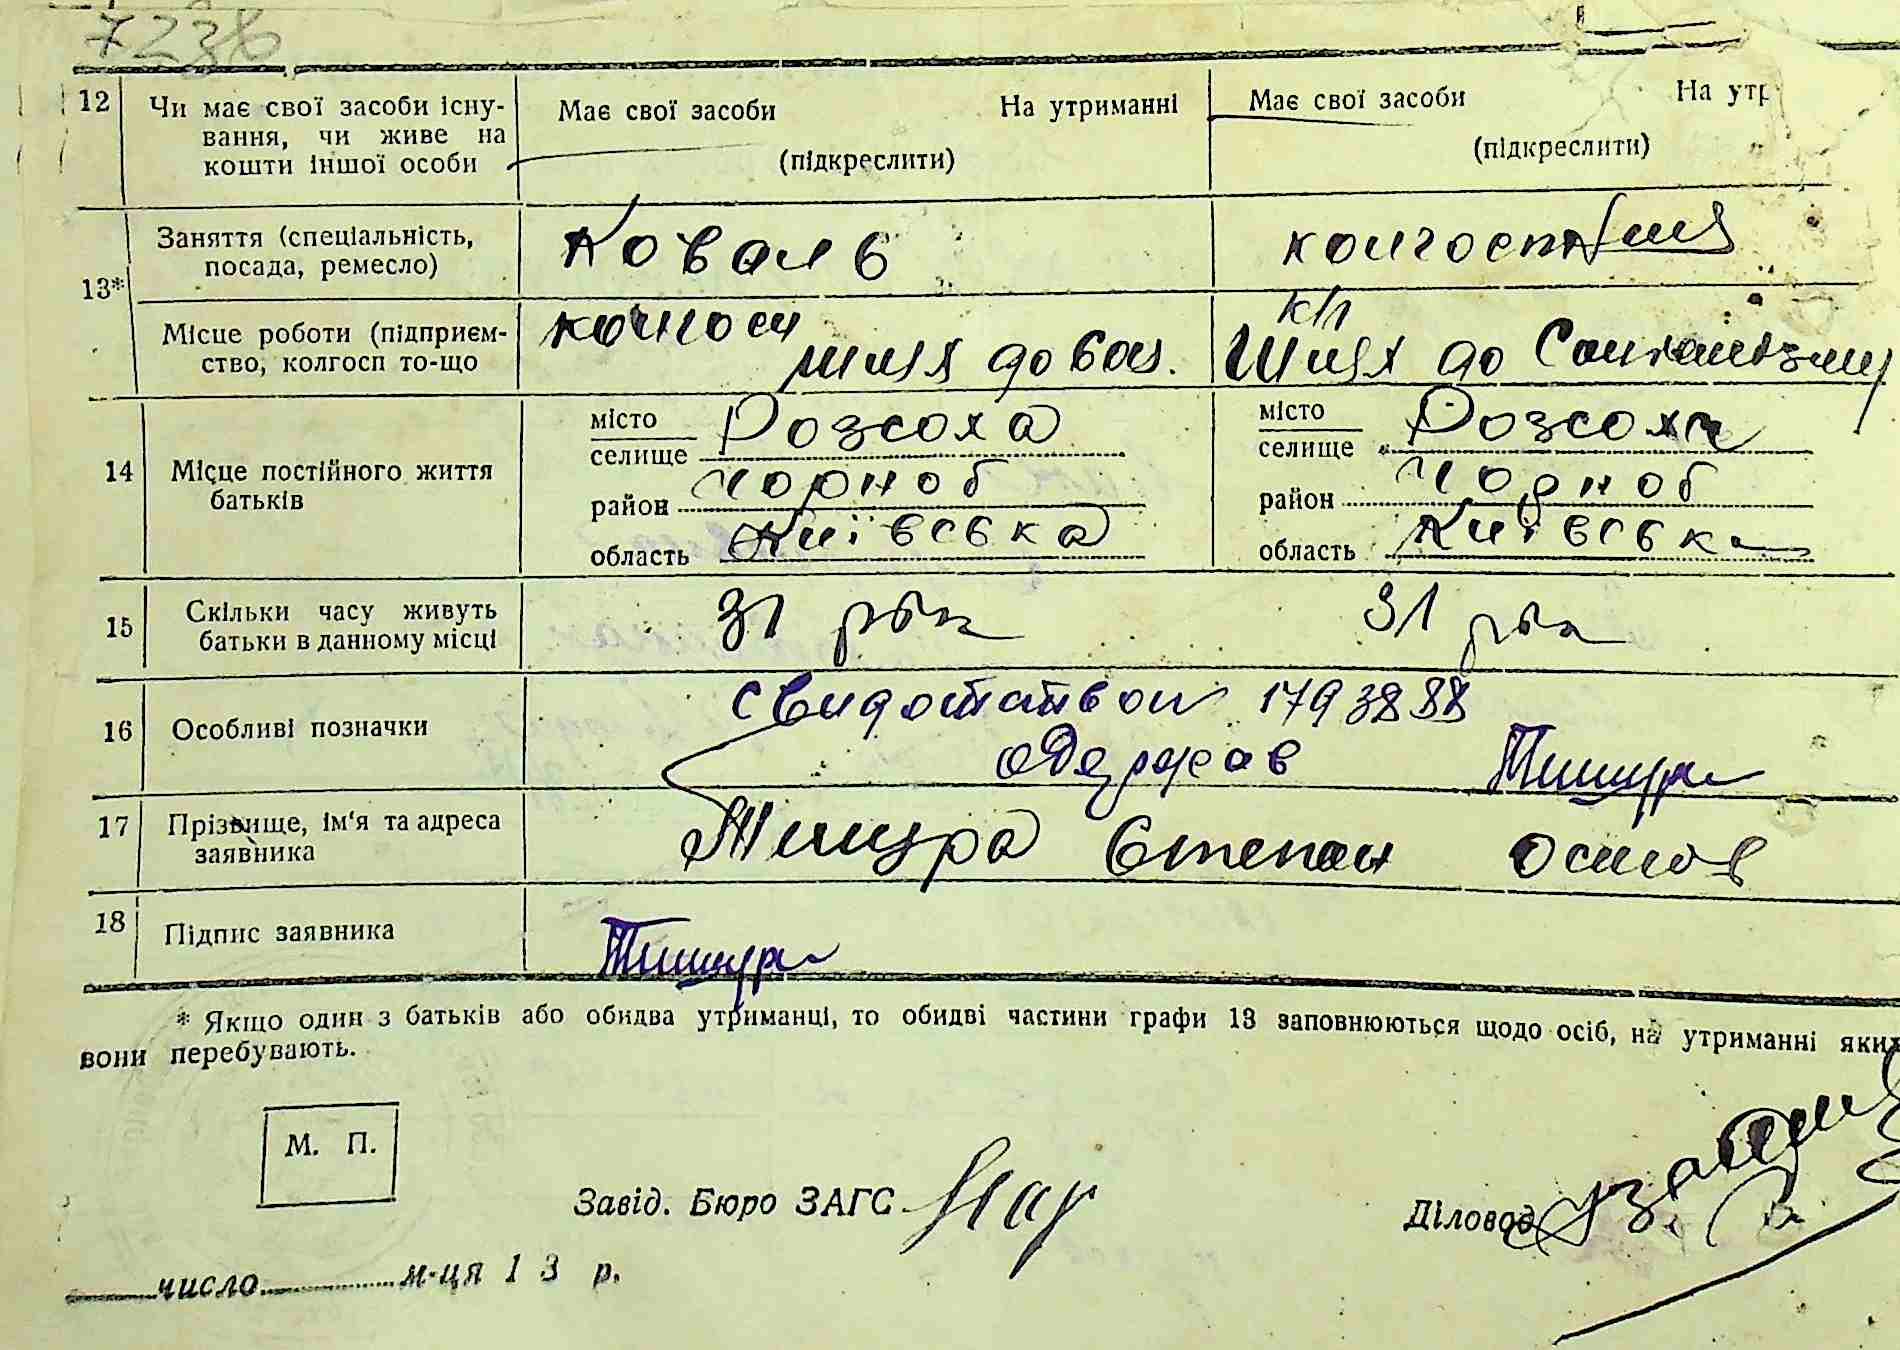 7236
12 Чи має свої засоби існу-
вання, чи живе на
кошти іншої особи
Має свої засоби На утриманні
(підкреслити)
Має свої засоби На утр
(підкреслити)
13* Заняття (спеціальність,
посада, ремесло)
Коваль
колгоспниця
Місце роботи (підприєм-
ство, колгосп то-що
колгосп
шлях до
к/г
Шлях до Соціалізму
14 Місце постійного життя
батьків
місто
селище Розсоха
район Чорноб
область Київська
місто
селище Розсоха
район Чорноб
область Київська
15 Скільки часу живуть
батьки в данному місці
31 рік
31 рік
16 Особливі позначки
свидотством 1793888
одержав Тишура
17 Прізвище, ім'я та адреса
заявника
Тишура Степан Осипов
18 Підпис заявника
Тишура
* Якщо один з батьків або обидва утриманці, то обидві частини графи 13 заповнюються щодо осіб, на утриманні яких
вони перебувають.
М. П.
Завід. Бюро ЗАГС
Діловод
число м-ця 13 р.